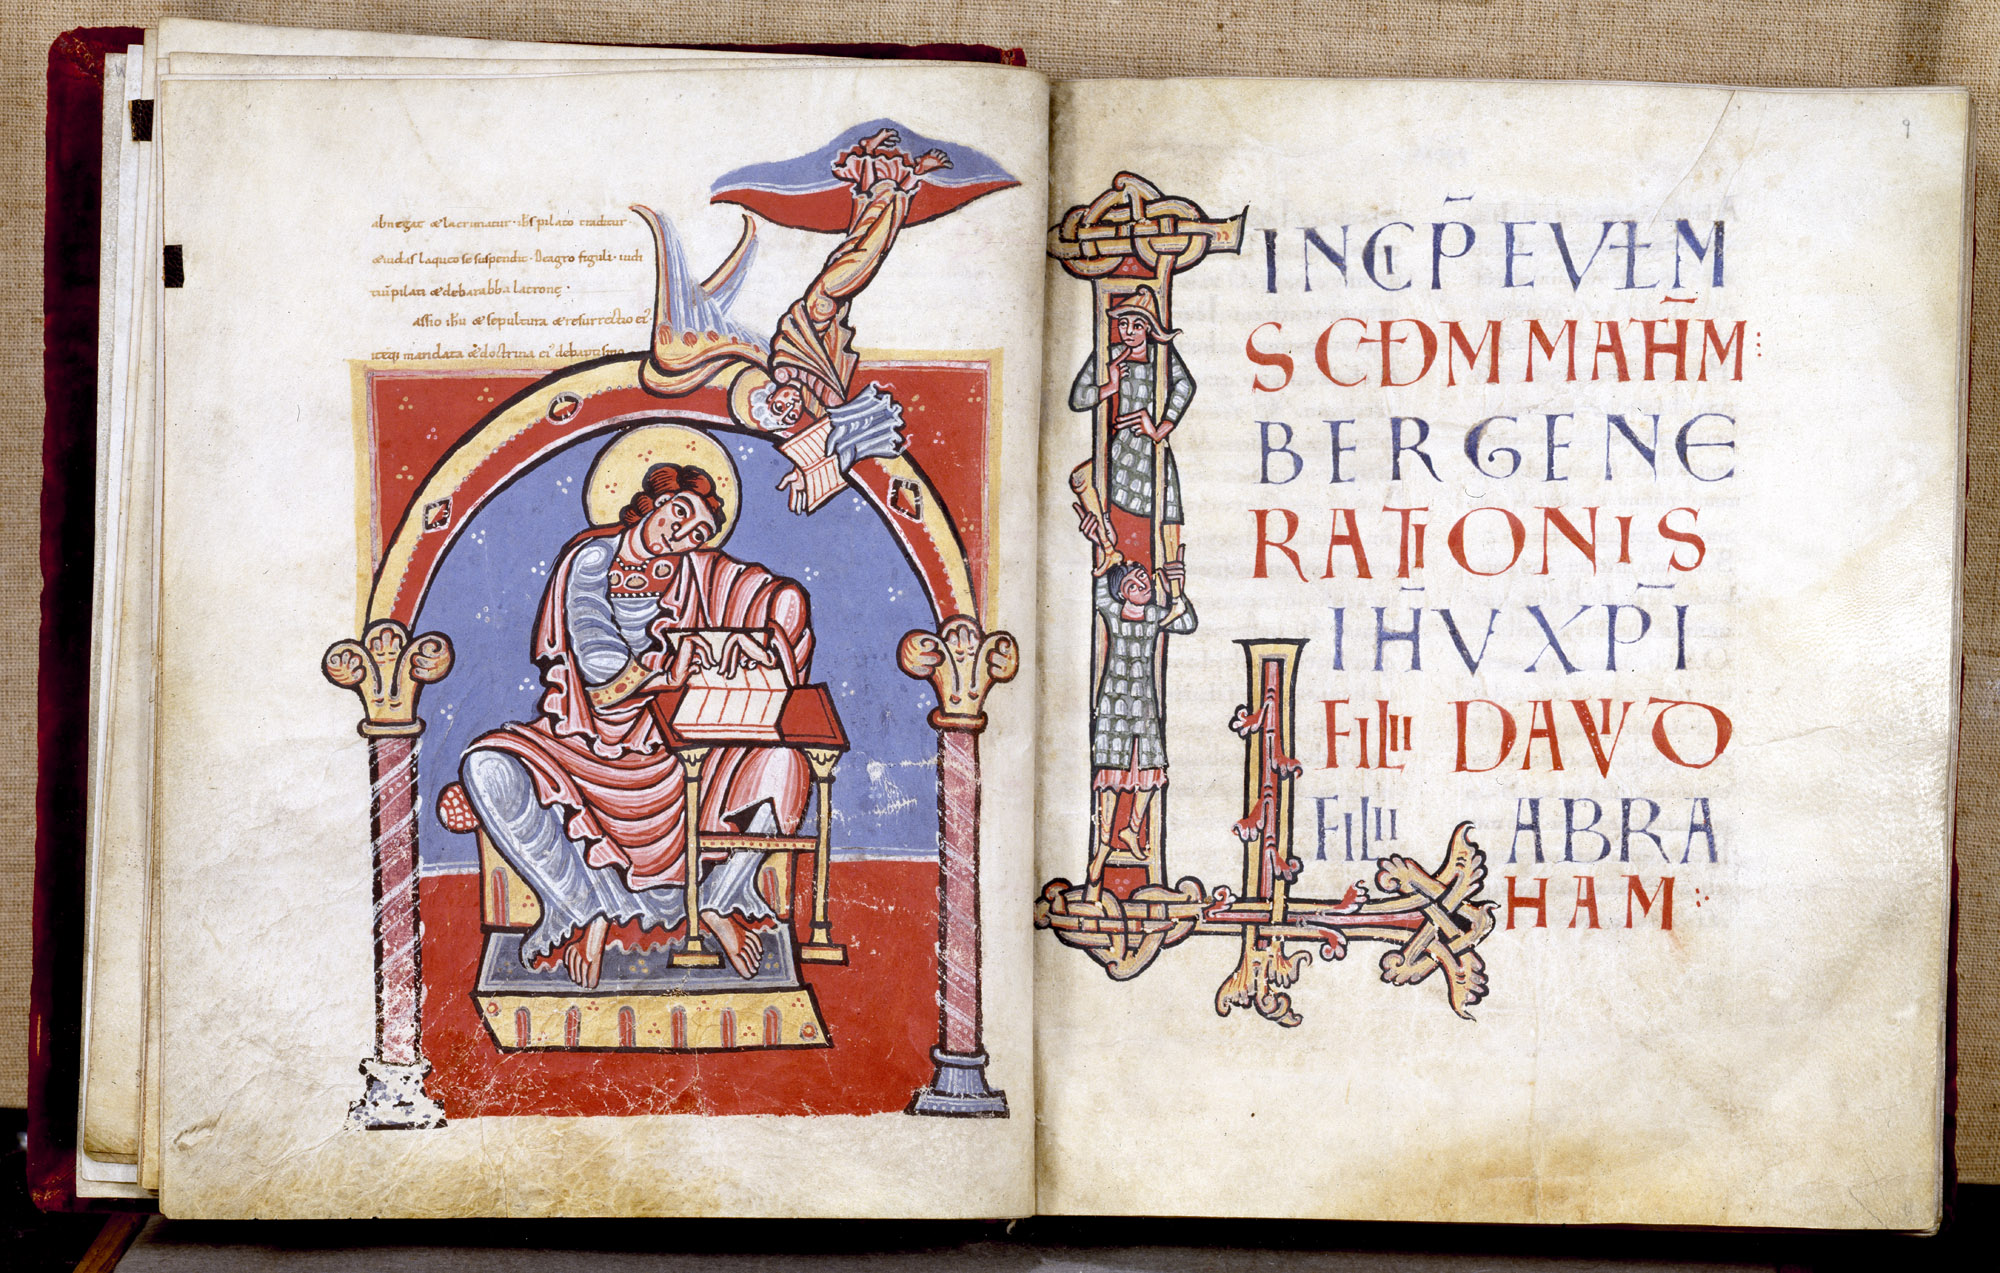 abnegat & lacrimatur · ihs pilato traditur
& iudas laqueo se suspendit · De agro figuli · iudi
tiu pilati & debarabba latronę ·
assio ihu & sepultura & resurrectio ei᾽
itēq; mandata & doctrina ei᾽ debaptismo
9
INCIP̄ EVŁM
SCĐM MATH̄M:
LIBER GENE
RATIONIS
IH̄V XP̄I
FILII DAVID
FILII ABRA
HAM: